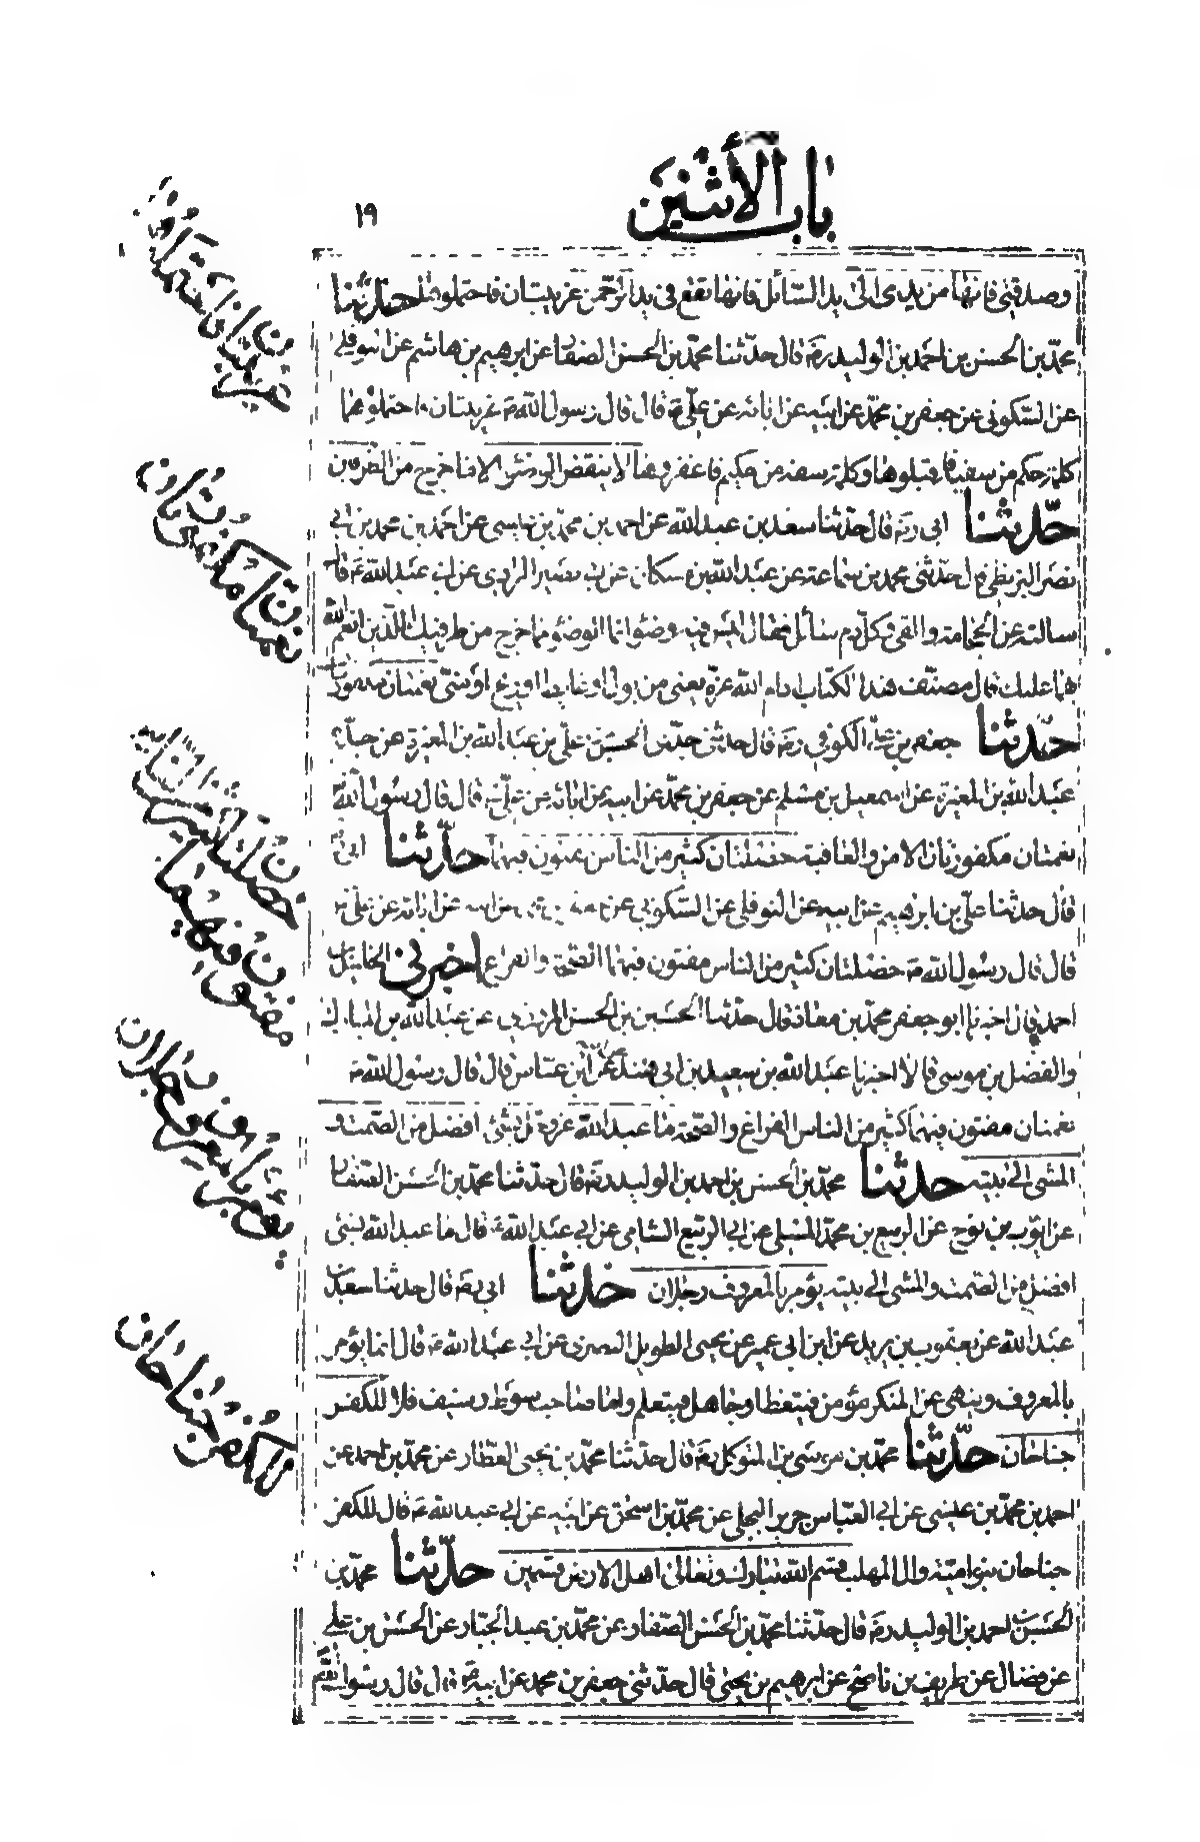 باب الأثنين
١٩
وصدقتي فانها من يدي الى يد السائل فانها تقع في يد الرحمن غريبتان فاحتملوهما حدثنا
محمد بن الحسن بن احمد بن الوليد ره قال حدثنا محمد بن الحسن الصفار عن ابرهيم بن هاشم عن النوفلي
عن السكوني عن جعفر بن محمد عن ابيه عن ابائه عن علي ع قال قال رسول الله ص غريبتان فاحتملوهما
كلمة حكم من سفيه فاقبلوها وكلمة سفه من حكيم فاغفروها لا ينقض الوضوء الا ما خرج من الطرفين
حدثنا ابي ره قال حدثنا سعد بن عبد الله عن احمد بن محمد بن عيسى عن احمد بن محمد بن ابي
نصر البزنطي قال حدثني محمد بن سماعة عن عبد الله بن مسكان عن ابي بصير المرادي عن ابي عبد الله ع قال
سالته عن الحجامة والقي وكل دم سائل فقال ليس فيه وضوء انما الوضوء مما خرج من طرفيك الذين انعم الله
بهما عليك قال مصنف هذا الكتاب ادام الله عزه يعني من بول او غايط او ريح او مني نعمتان مكفورتان
حدثنا جعفر بن علي الكوفي ره قال حدثني جدي الحسن بن علي بن عبد الله بن المغيرة عن جده
عبد الله بن المغيرة عن اسمعيل بن مسلم عن جعفر بن محمد عن ابيه عن ابائه عن علي ع قال قال رسول الله
نعمتان مكفورتان الامن والعافية خصلتان كثير من الناس مفتون فيهما حدثنا ابي ره
قال حدثنا علي بن ابرهيم عن ابيه عن النوفلي عن السكوني عن جعفر بن محمد عن ابيه عن ابائه عن علي ع
قال قال رسول الله ص خصلتان كثير من الناس مفتون فيهما الصحة والفراغ اخبرني الخليل بن
احمد قال اخبرنا ابو جعفر محمد بن معاذ قال حدثنا الحسين بن الحسن المروزي عن عبد الله بن المبارك
والفضل بن موسى قالا اخبرنا عبد الله بن سعيد بن ابي هند عن ابن عباس قال قال رسول الله ص
نعمتان مفتون فيهما كثير من الناس الفراغ والصحة ما عبد الله عز وجل بشيء افضل من الصمت و
المشي الى بيته حدثنا محمد بن الحسن بن احمد بن الوليد ره قال حدثنا محمد بن الحسن الصفار
عن ايوب بن نوح عن الربيع بن محمد المسلي عن ابي الربيع الشامي عن ابي عبد الله ع قال ما عبد الله بشيء
افضل من الصمت والمشي الى بيته يؤمر بالمعروف رجلان حدثنا ابي ره قال حدثنا سعد بن
عبد الله عن يعقوب بن يزيد عن ابن ابي عمير عن يحيى الطويل البصري عن ابي عبد الله ع قال انما يؤمر
بالمعروف وينهى عن المنكر مؤمن فيتعظ او جاهل فيتعلم واما صاحب سوط وسيف فلا للكفر
جناحان حدثنا محمد بن موسى بن المتوكل ره قال حدثنا محمد بن يحيى العطار عن محمد بن احمد عن
احمد بن محمد بن عيسى عن ابي العباس جرير البجلي عن محمد بن اسحق عن ابيه عن ابي عبد الله ع قال للكفر
جناحان بنو امية وال المهلب قسم الله تبارك وتعالى اهل الارض قسمين حدثنا محمد بن
الحسن بن احمد بن الوليد ره قال حدثنا محمد بن الحسن الصفار عن محمد بن عبد الجبار عن الحسن بن علي
عن فضال عن ظريف بن ناصح عن ابرهيم بن يحيى قال حدثني جعفر بن محمد عن ابيه ع قال قال رسول الله ص
غريبتان فاحتملوهما
نعمتان مكفورتان
خصلتان كثير من الناس
مفتون فيهما
يؤمر بالمعروف رجلان
للكفر جناحان